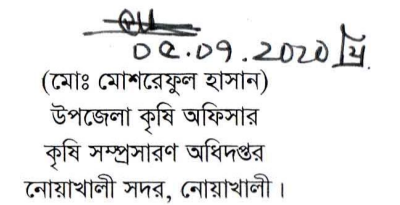 ০৫.০৭.২০২০ খ্রি.
(মোঃ মোশরেফুল হাসান)
উপজেলা কৃষি অফিসার
কৃষি সম্প্রসারণ অধিদপ্তর
নোয়াখালী সদর, নোয়াখালী।